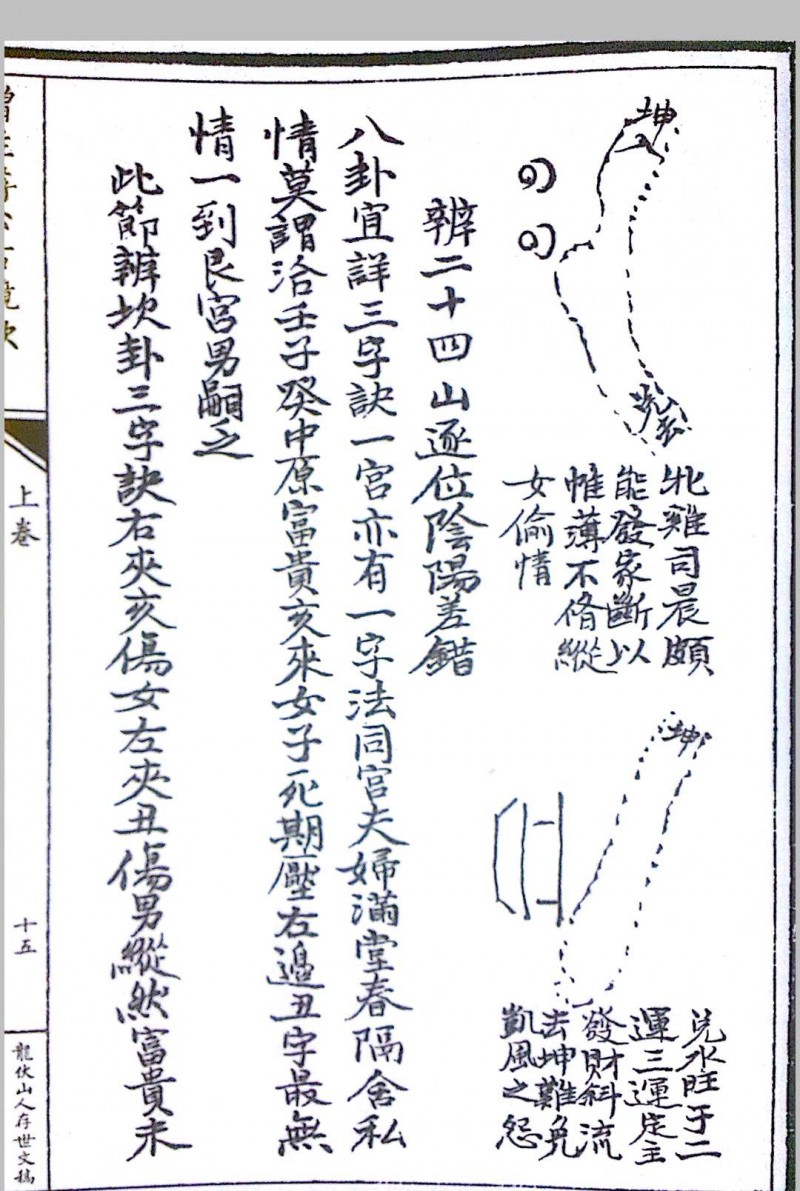 坤
兌去
牝雞司晨頗
能發家斷以
帷薄不脩縱
女偷情
坤
兌水旺于二
運三運定主
發財斜流
去坤難免
凱風之怨
辨二十四山逐位陰陽差錯
八卦宜詳三字訣一宮亦有一字法同宮夫婦滿堂春隔舍私
情莫謂洽壬子癸中原富貴亥來女子死期壓右邊丑字最無
情一到艮宮男嗣乏
此節辨坎卦三字訣右夾亥傷女左夾丑傷男縱然富貴未
上卷
十五
龍伏山人存世文稿